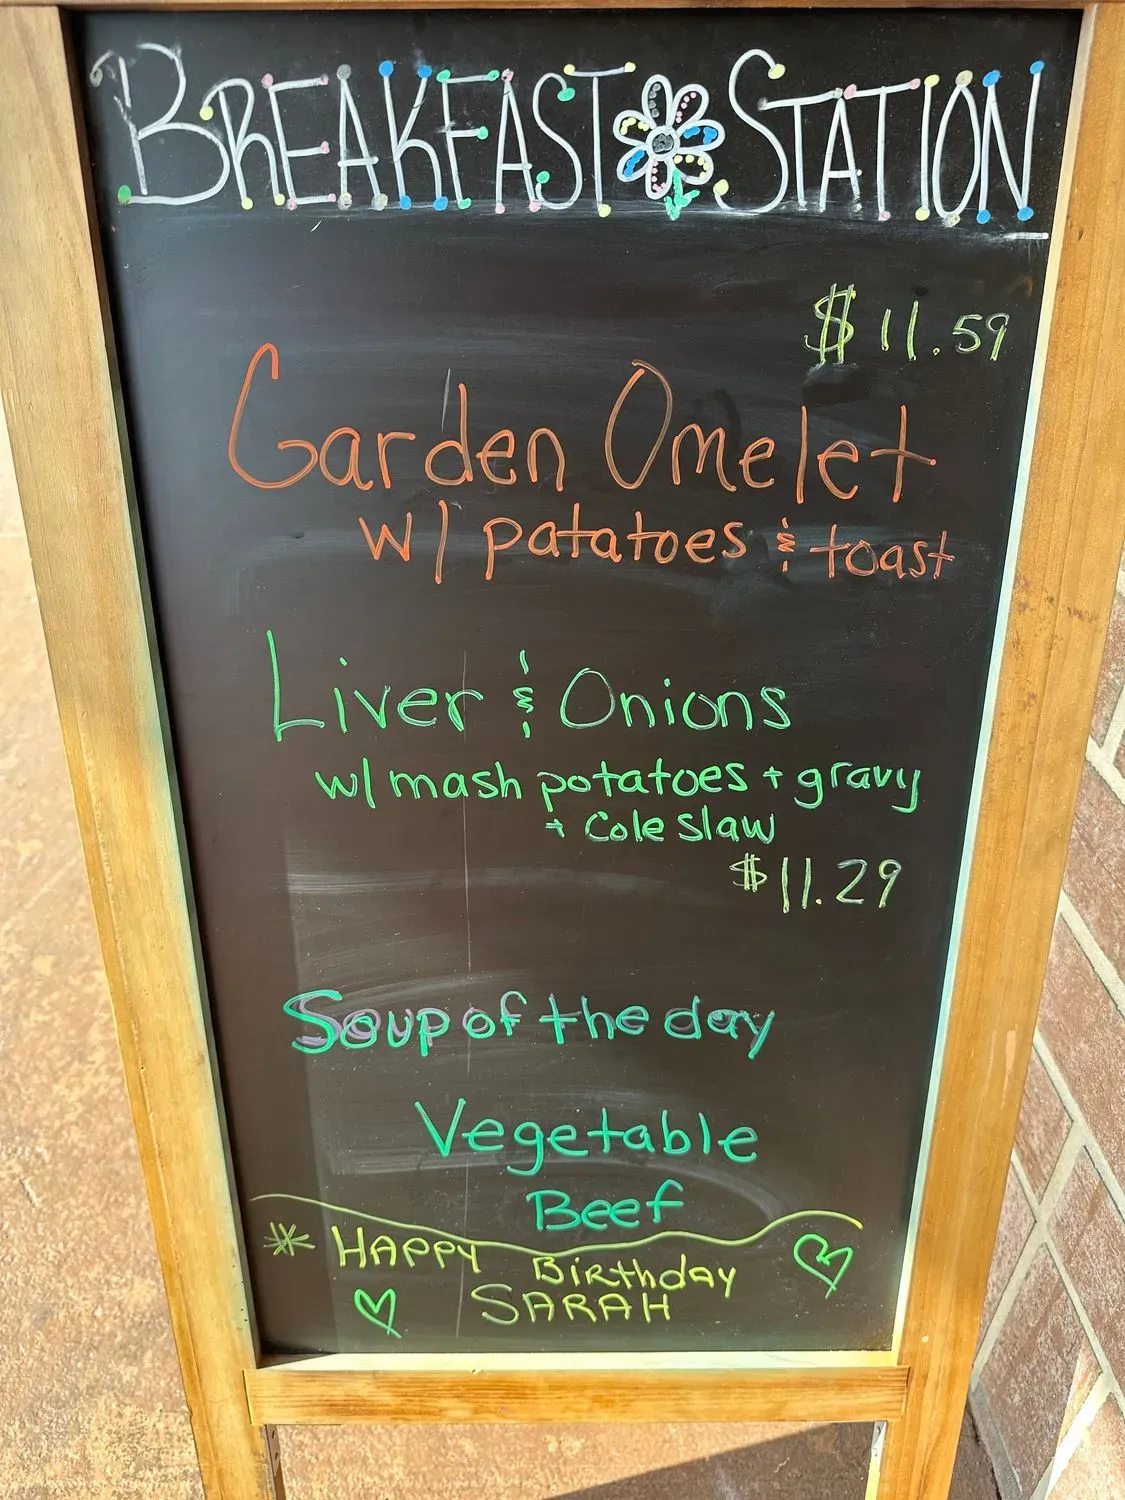 BREAKFAST STATION
$11.59
Garden Omelet
w/ patatoes & toast
Liver & Onions
w/ mash potatoes + gravy
+ Cole slaw
$11.29
Soup of the day
Vegetable
Beef
* HAPPY BirthdAY
SARAH